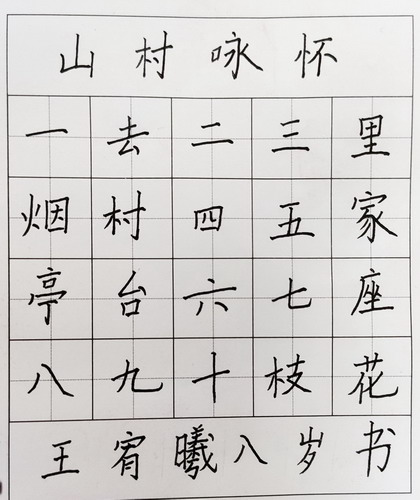 山村咏怀
一去二三里
烟村四五家
亭台六七座
八九十枝花
王宥曦八岁书